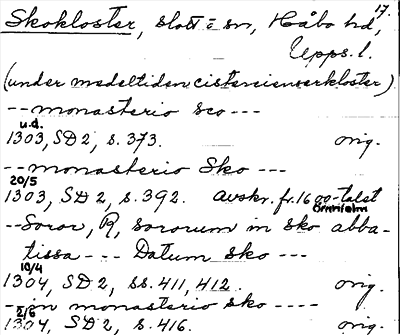 17.
Skokloster, slott o sn, Håbo hd,
Upps. l.
(under medeltiden cistercienserkloster)
--monasterio sco---
u.d.
1303, SD 2, s. 373. orig.
--monasterio Sko---
20/5
1303, SD 2, s. 392. avskr. fr. 1600-talet
Örnhielm
--Soror, R, sororum in sko abba-
tissa --- Datum sko ---
10/4
1304, SD 2, ss. 411, 412. orig.
--in monasterio sko----
2/6
1304, SD 2, s. 416. orig.